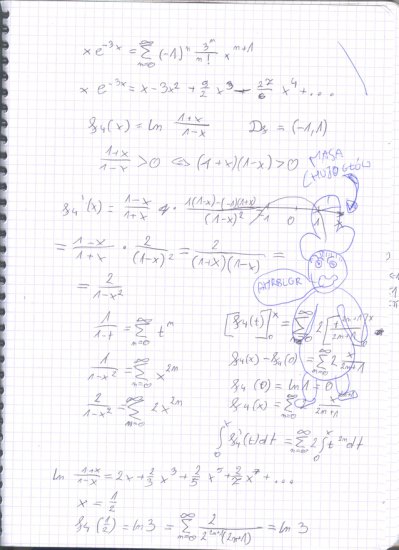 x e^{-3x} = \sum_{n=0}^{\infty} (-1)^n \frac{3^n}{n!} x^{n+1}
x e^{-3x} = x - 3x^2 + \frac{9}{2} x^3 - \frac{27}{6} x^4 + ...
f_4(x) = ln \frac{1+x}{1-x}   D_f = (-1,1)
\frac{1+x}{1-x} > 0 ⇔ (1+x)(1-x) > 0
MASA
f_4'(x) = \frac{1-x}{1+x} · \frac{1(1-x)-(-1)(1+x)}{(1-x)^2}
-1 0 1
= \frac{1-x}{1+x} · \frac{2}{(1-x)^2} = \frac{2}{(1+x)(1-x)} =
= \frac{2}{1-x^2}
\frac{1}{1-t} = \sum_{n=0}^{\infty} t^n
\frac{1}{1-x^2} = \sum_{n=0}^{\infty} x^{2n}
\frac{2}{1-x^2} = \sum_{n=0}^{\infty} 2x^{2n}
[f_4(t)]_0^x = \sum_{n=0}^{\infty} 2 [\frac{t^{2n+1}}{2n+1}]_0^x
f_4(x) - f_4(0) = \sum_{n=0}^{\infty} 2 \frac{x}{2n+1}
f_4(0) = ln 1 = 0
f_4(x) = \sum_{n=0}^{\infty} \frac{x}{2n+1}
\int_0^x f_4'(t)dt = \sum_{n=0}^{\infty} 2 \int_0^x t^{2n} dt
ln \frac{1+x}{1-x} = 2x + \frac{2}{3} x^3 + \frac{2}{5} x^5 + \frac{2}{7} x^7 + ...
x = \frac{1}{2}
f_4(\frac{1}{2}) = ln 3 = \sum_{n=0}^{\infty} \frac{2}{2^{2n+1}(2n+1)} = ln 3